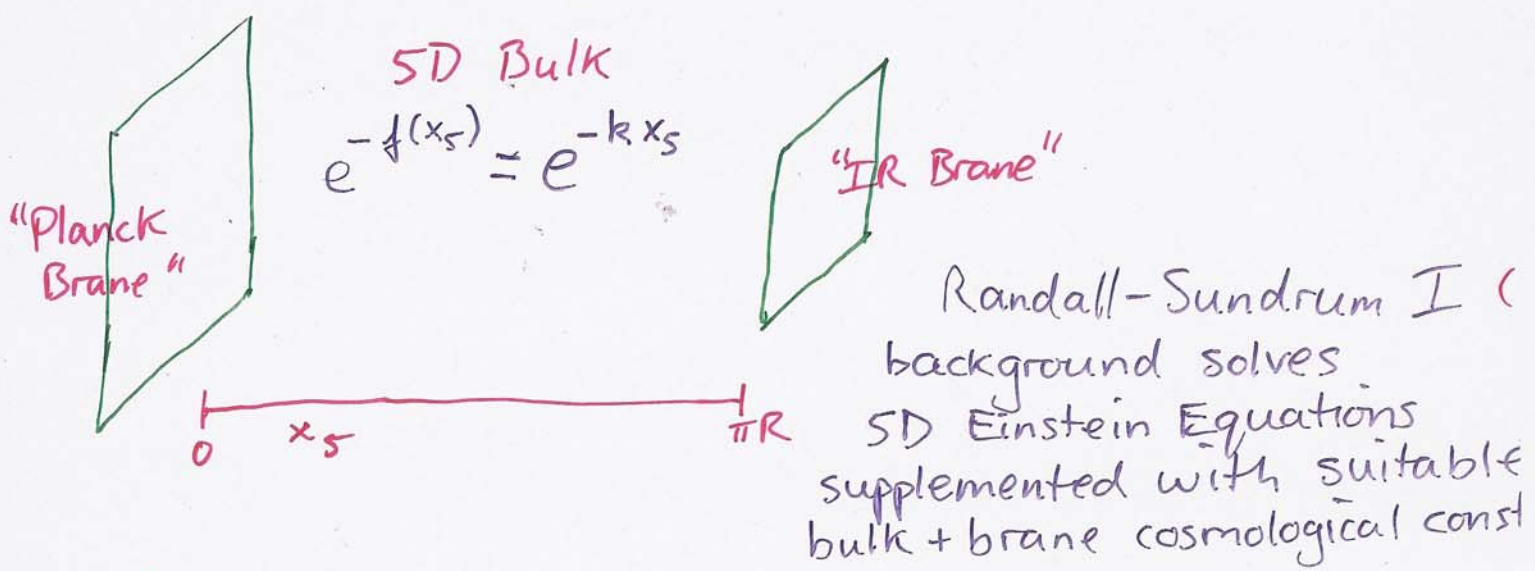 5D Bulk
e^{-f(x_5)} = e^{-k x_5}
"Planck
Brane"
"IR Brane"
0
x_5
πR
Randall-Sundrum I (
background solves
5D Einstein Equations
supplemented with suitable
bulk + brane cosmological const